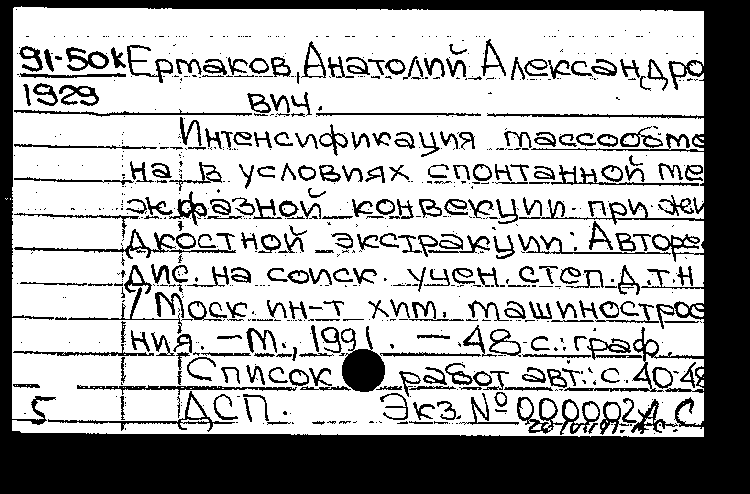 91-50к Ермаков, Анатолий Александро
1929 вич.
Интенсификация массообме
на в условиях спонтанной ме
жфазной конвекции при жи
дкостной экстракции: Авторе
дис. на соиск. учен. степ. д.т.н
/ Моск. ин-т хим. машинострое
ния. — М., 1991. — 48 с.: граф.
Список работ авт.: с. 40-48
5 ДСП. Экз. № 000002 д с